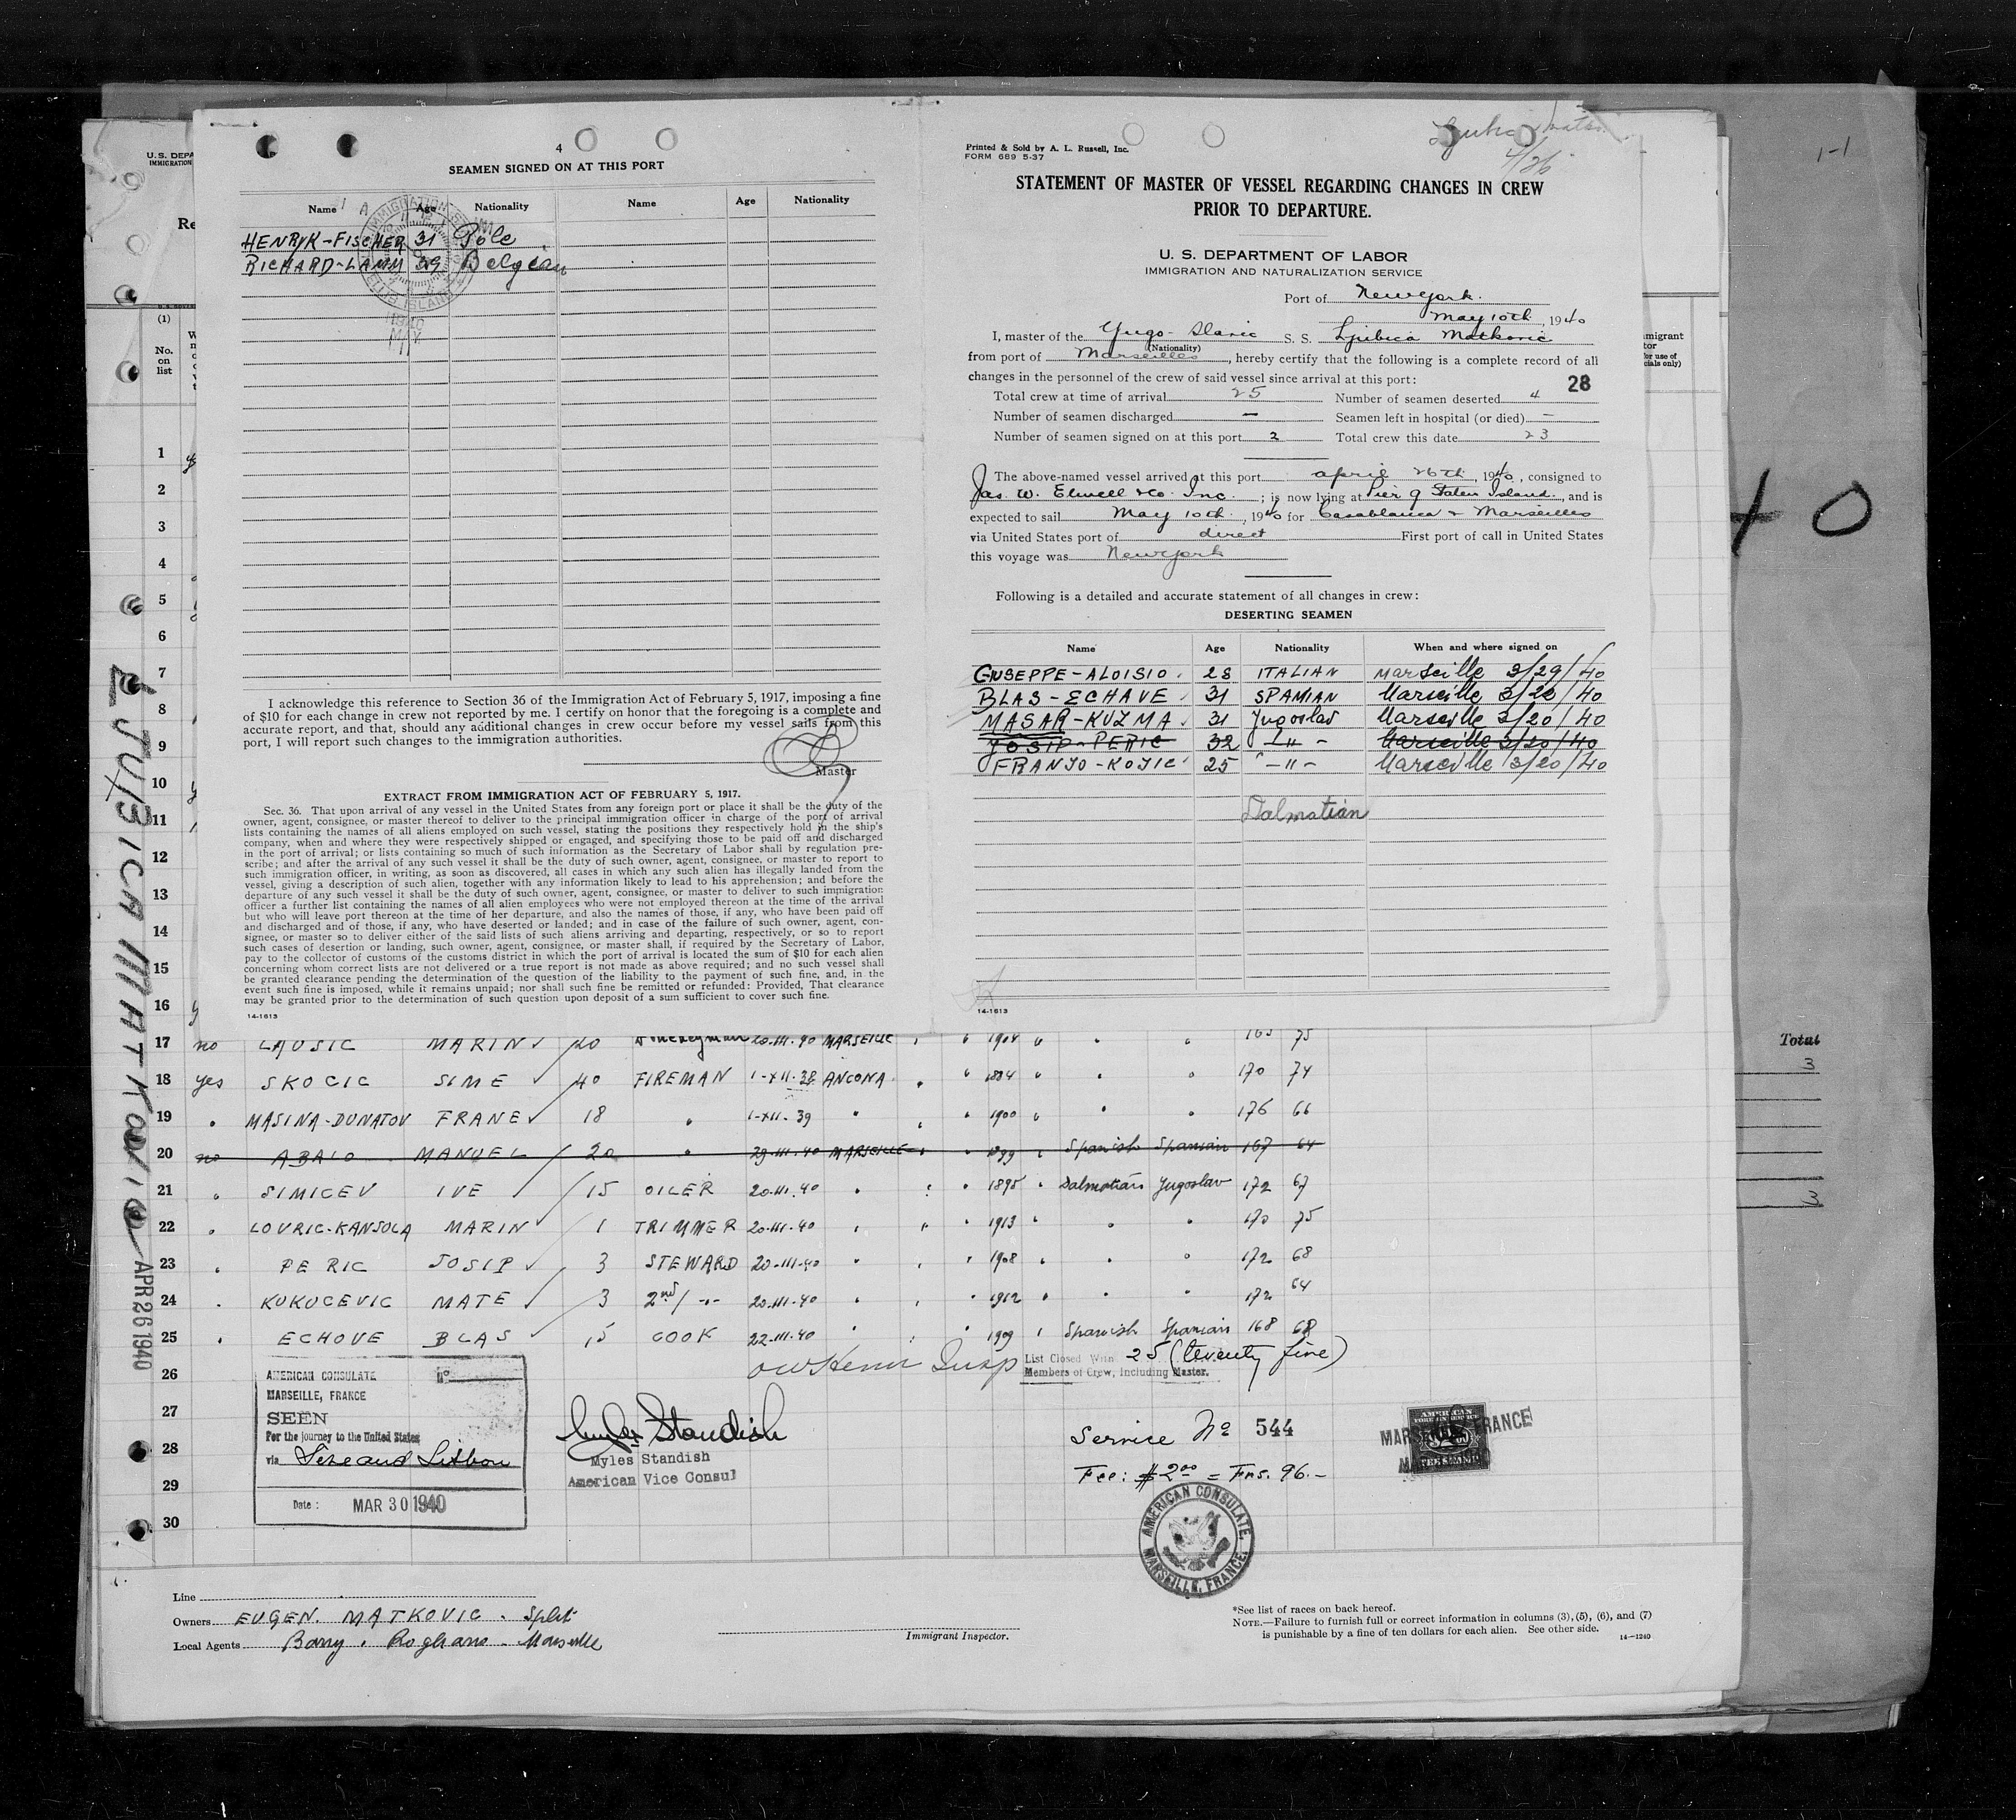 4
SEAMEN SIGNED ON AT THIS PORT
Name Age Nationality Name Age Nationality
HENRYK-FISCHER 31 Pole
RICHARD-LAMM 29 Belgian
I acknowledge this reference to Section 36 of the Immigration Act of February 5, 1917, imposing a fine
of $10 for each change in crew not reported by me. I certify on honor that the foregoing is a complete and
accurate report, and that, should any additional changes in crew occur before my vessel sails from this
port, I will report such changes to the immigration authorities.
Master
EXTRACT FROM IMMIGRATION ACT OF FEBRUARY 5, 1917.
Sec. 36. That upon arrival of any vessel in the United States from any foreign port or place it shall be the duty of the
owner, agent, consignee, or master thereof to deliver to the principal immigration officer in charge of the port of arrival
lists containing the names of all aliens employed on such vessel, stating the positions they respectively hold in the ship's
company, when and where they were respectively shipped or engaged, and specifying those to be paid off and discharged
in the port of arrival; or lists containing so much of such information as the Secretary of Labor shall by regulation pre-
scribe; and after the arrival of any such vessel it shall be the duty of such owner, agent, consignee, or master to report to
such immigration officer, in writing, as soon as discovered, all cases in which any such alien has illegally landed from the
vessel, giving a description of such alien, together with any information likely to lead to his apprehension; and before the
departure of any such vessel it shall be the duty of such owner, agent, consignee, or master to deliver to such immigration
officer a further list containing the names of all alien employees who were not employed thereon at the time of the arrival
but who will leave port thereon at the time of her departure, and also the names of those, if any, who have been paid off
and discharged and of those, if any, who have deserted or landed; and in case of the failure of such owner, agent, con-
signee, or master so to deliver either of the said lists of such aliens arriving and departing, respectively, or so to report
such cases of desertion or landing, such owner, agent, consignee, or master shall, if required by the Secretary of Labor,
pay to the collector of customs of the customs district in which the port of arrival is located the sum of $10 for each alien
concerning whom correct lists are not delivered or a true report is not made as above required; and no such vessel shall
be granted clearance pending the determination of the question of the liability to the payment of such fine, and, in the
event such fine is imposed, while it remains unpaid; nor shall such fine be remitted or refunded: Provided, That clearance
may be granted prior to the determination of such question upon deposit of a sum sufficient to cover such fine.
14-1613
Printed & Sold by A. L. Russell, Inc.
FORM 689 5-37
4/26
STATEMENT OF MASTER OF VESSEL REGARDING CHANGES IN CREW
PRIOR TO DEPARTURE.
U. S. DEPARTMENT OF LABOR
IMMIGRATION AND NATURALIZATION SERVICE
Port of New York.
May 10th, 1940
I, master of the Yugo-Slavic S. S. Ljubica Matkovic
(Nationality)
from port of Marseilles, hereby certify that the following is a complete record of all
changes in the personnel of the crew of said vessel since arrival at this port:
28
Total crew at time of arrival 25 Number of seamen deserted 4
Number of seamen discharged — Seamen left in hospital (or died) —
Number of seamen signed on at this port 2 Total crew this date 23
The above-named vessel arrived at this port april 26th, 1940, consigned to
Jas. W. Elwell & Co. Inc. ; is now lying at Pier 9 Staten Island, and is
expected to sail May 10th, 1940 for Casablanca & Marseilles
via United States port of direct First port of call in United States
this voyage was New York
Following is a detailed and accurate statement of all changes in crew:
DESERTING SEAMEN
Name Age Nationality When and where signed on
GUSEPPE-ALOISIO. 28 ITALIAN Marseille 3/29/40
BLAS-ECHAVE 31 SPANIAN Marseille 3/20/40
MASAR-KUZMA 31 Jugoslav Marseille 3/20/40
JOSIP-PERIC 32 -"- Marseille 3/20/40
FRANJO-KOJIC 25 -"- Marseille 3/20/40
Dalmatian
14-1613
U. S. DEPA
IMMIGRATION
(1)
No.
on
list
1
2
3
4
5
6
7
8
9
10
11
12
13
14
15
16
17 no LAUSIC MARIN 20 Donkeyman 20-III-40 MARSEILLE " 1904 " " " 165 75
18 yes SKOCIC SIME 40 FIREMAN 1-XII-38 ANCONA " " 1884 " " " 170 74
19 " MASINA-DUNATOV FRANE 18 " 1-XII-39 " " " 1900 " " " 176 66
20 no ABALO MANUEL 20 " 29-III-40 MARSEILLE " " 1899 " Spanish Spanian 167 64
21 " SIMICEV IVE 15 OILER 20-III-40 " " " 1895 " Dalmatian Jugoslav 172 67
22 " LOVRIC-KANSOLA MARIN 1 TRIMMER 20-III-40 " " " 1913 " " " 170 75
23 " PERIC JOSIP 3 STEWARD 20-III-40 " " " 1908 " " " 172 68
24 " KUKUCEVIC MATE 3 2nd/ -"- 20-III-40 " " " 1912 " " " 172 64
25 " ECHOVE BLAS 15 COOK 22-III-40 " " " 1909 " Spanish Spanian 168 68
26
27
28
29
30
List Closed With 25 (twenty five)
Members of Crew, Including Master.
AMERICAN CONSULATE No
MARSEILLE, FRANCE
SEEN
For the journey to the United States
via Sete and Lisbon
Date: MAR 30 1940
Myles Standish
American Vice Consul
Service No 544
Fee: $2.00 = Frs. 96.-
AMERICAN CONSULATE,
MARSEILLE, FRANCE.
AMERICAN
FOREIGN SERVICE
MARSEILLE FRANCE
Line
Owners EUGEN MATKOVIC - Split
Local Agents Barry, Rogliano - Marseille
Immigrant Inspector.
*See list of races on back hereof.
NOTE.—Failure to furnish full or correct information in columns (3), (5), (6), and (7)
is punishable by a fine of ten dollars for each alien. See other side.
14-1240
LJUBICA MATKOVIC
APR 26 1940
1-1
40
Total
3
3